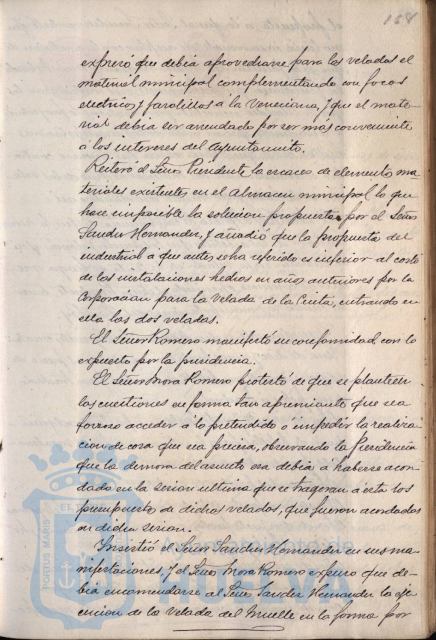 158
expresó que debia aprovecharse para las veladas el
material municipal complementando con focos
electricos y farolillos a la Veneciana, y que el mate-
rial debia ser arrendado por ser más conveniente
á los intereses del Ayuntamiento.
Reiteró el Señor Presidente la escasez de elementos ma-
teriales existentes en el almacen municipal lo que
hace imposible la solucion propuesta por el Señor
Sander Hernandez, y añadió que la propuesta del
industrial a que antes se ha referido es inferior al coste
de las instalaciones hechas en años anteriores por la
Corporacion para la Velada de la Cinta, entrando en
ella las dos veladas.
El Señor Romero manifestó su conformidad con lo
expuesto por la presidencia.
El Señor Mora Romero protestó de que se planteen
las cuestiones en forma tan apremiante que sea
forzoso acceder a lo pretendido ó impedir la realiza-
cion de cosa que sea precisa, observando la Presidencia
que la demora del asunto era debida á haberse acor-
dado en la sesion ultima que se trageran a esta los
presupuestos de dichas veladas, que fueron acordados
en dicha sesion.
Insistió el Señor Sander Hernandez en sus ma-
nifestaciones, y el Señor Mora Romero expuso que de-
bia encomendarse al Señor Sander Hernandez la eje-
cucion de la Velada del Muelle en la forma por
PORTUS MARIS